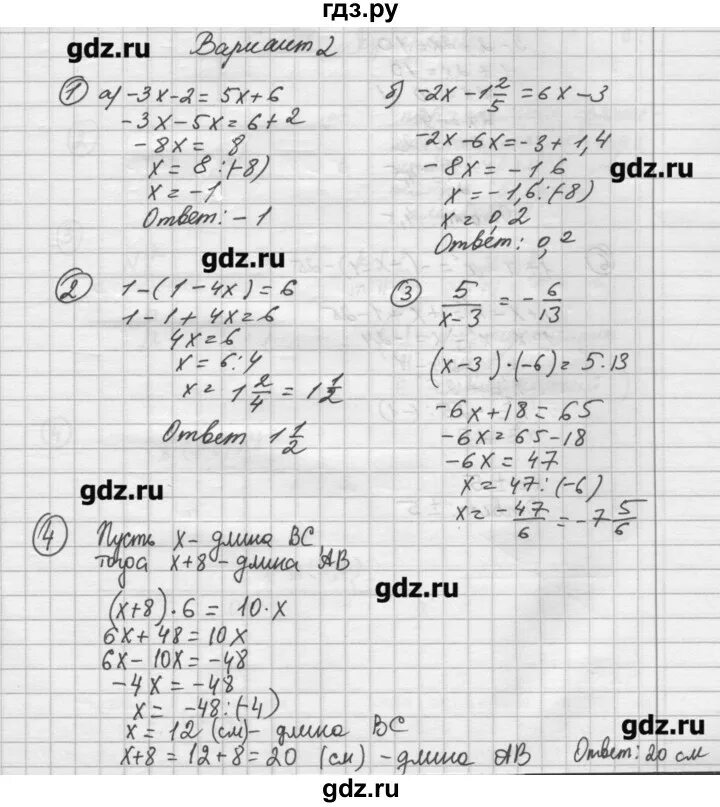 гдз.ру
gdz.ru
Вариант 2
① а) -3x-2=5x+6
-3x-5x=6+2
-8x= 8
x= 8:(-8)
x=-1
Ответ: -1
б) -2x-1 2/5 =6x-3
-2x-6x=-3+1,4
-8x=-1,6
x=-1,6:(-8)
x=0,2
Ответ: 0,2
gdz.ru
gdz.ru
② 1-(1-4x)=6
1-1+4x=6
4x=6
x=6:4
x= 1 2/4 = 1 1/2
Ответ 1 1/2
③ 5/(x-3) = - 6/13
(x-3)·(-6)=5·13
-6x+18=65
-6x=65-18
-6x=47
x=47:(-6)
x= -47/6 = -7 5/6
gdz.ru
④ Пусть x- длина BC
тогда x+8- длина AB
gdz.ru
(x+8)·6= 10·x
6x+48=10x
6x-10x=-48
-4x=-48
x= -48:(-4)
x=12 (см)- длина BC
x+8=12+8=20 (см) -длина AB
gdz.ru
Ответ: 20 см
gdz.ru